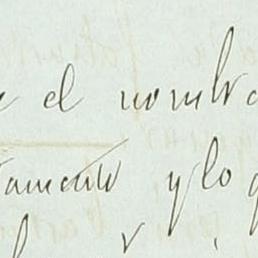 el nombra
amento y lo q